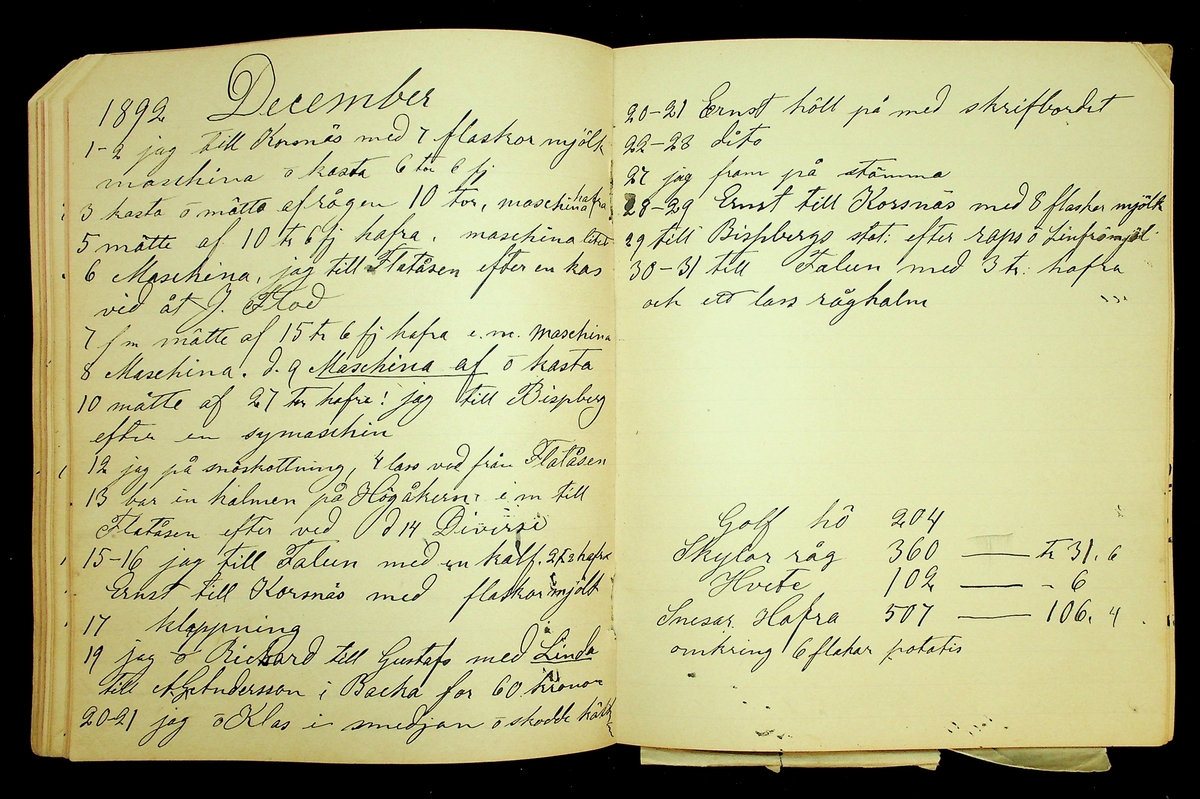 1892 December
1-2 jag till Korsnäs med 7 flaskor mjölk
maschina o kasta 6 tr 6 fj
3 kasta o mätta af rågen 10 tor, maschina hafra
5 mätte af 10 tr 6 fj hafra maschina
6 Maschina, jag till Flatåsen efter en kas
ved åt J. Flod
7 f m mätte af 15 tr 6 fj hafra e. m. maschina
8 Maschina. d. 9 Maschina af o kasta
10 mätte af 27 tr hafra! jag till Bispberg
efter en symaschin
12 jag på snöskottning, 4 lass ved från Flatåsen
13 bar in halmen på Högåkern e m till
Flatåsen efter ved d 14 Diverse
15-16 jag till Falun med en kalf. 2 tr hafra
Ernst till Korsnäs med flaskor mjölk
17 klappning
19 jag o Rickard till Gustafs med Linda
till And. Andersson i Backa for 60 kronor
20-21 jag o Klas i smedjan o skodde
20-21 Ernst höll på med skrifbordet
22-23 dito
27 jag fram på stämma
28-29 Ernst till Korsnäs med 8 flaskor mjölk
29 till Bispbergs stat: efter raps o Linfrömjöl
30-31 till Falun med 3 tr: hafra
och ett lass råghalm
Golf hö 204
Skylar råg 360 — tr 31. 6
Hvete 102 — - 6
Snesar Hafra 507 — 106. 4
omkring 6 flakar potatis